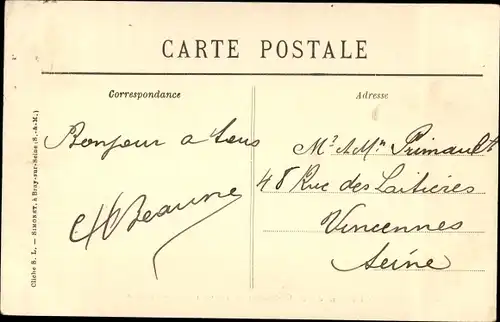 CARTE POSTALE
Correspondance
Bonjour a tous
Beaune
Adresse
Mr & Mme Primault
48 Rue des Laitières
Vincennes
Seine
Cliché S. L. — SIMONET, à Bray-sur-Seine (S.-&-M.)